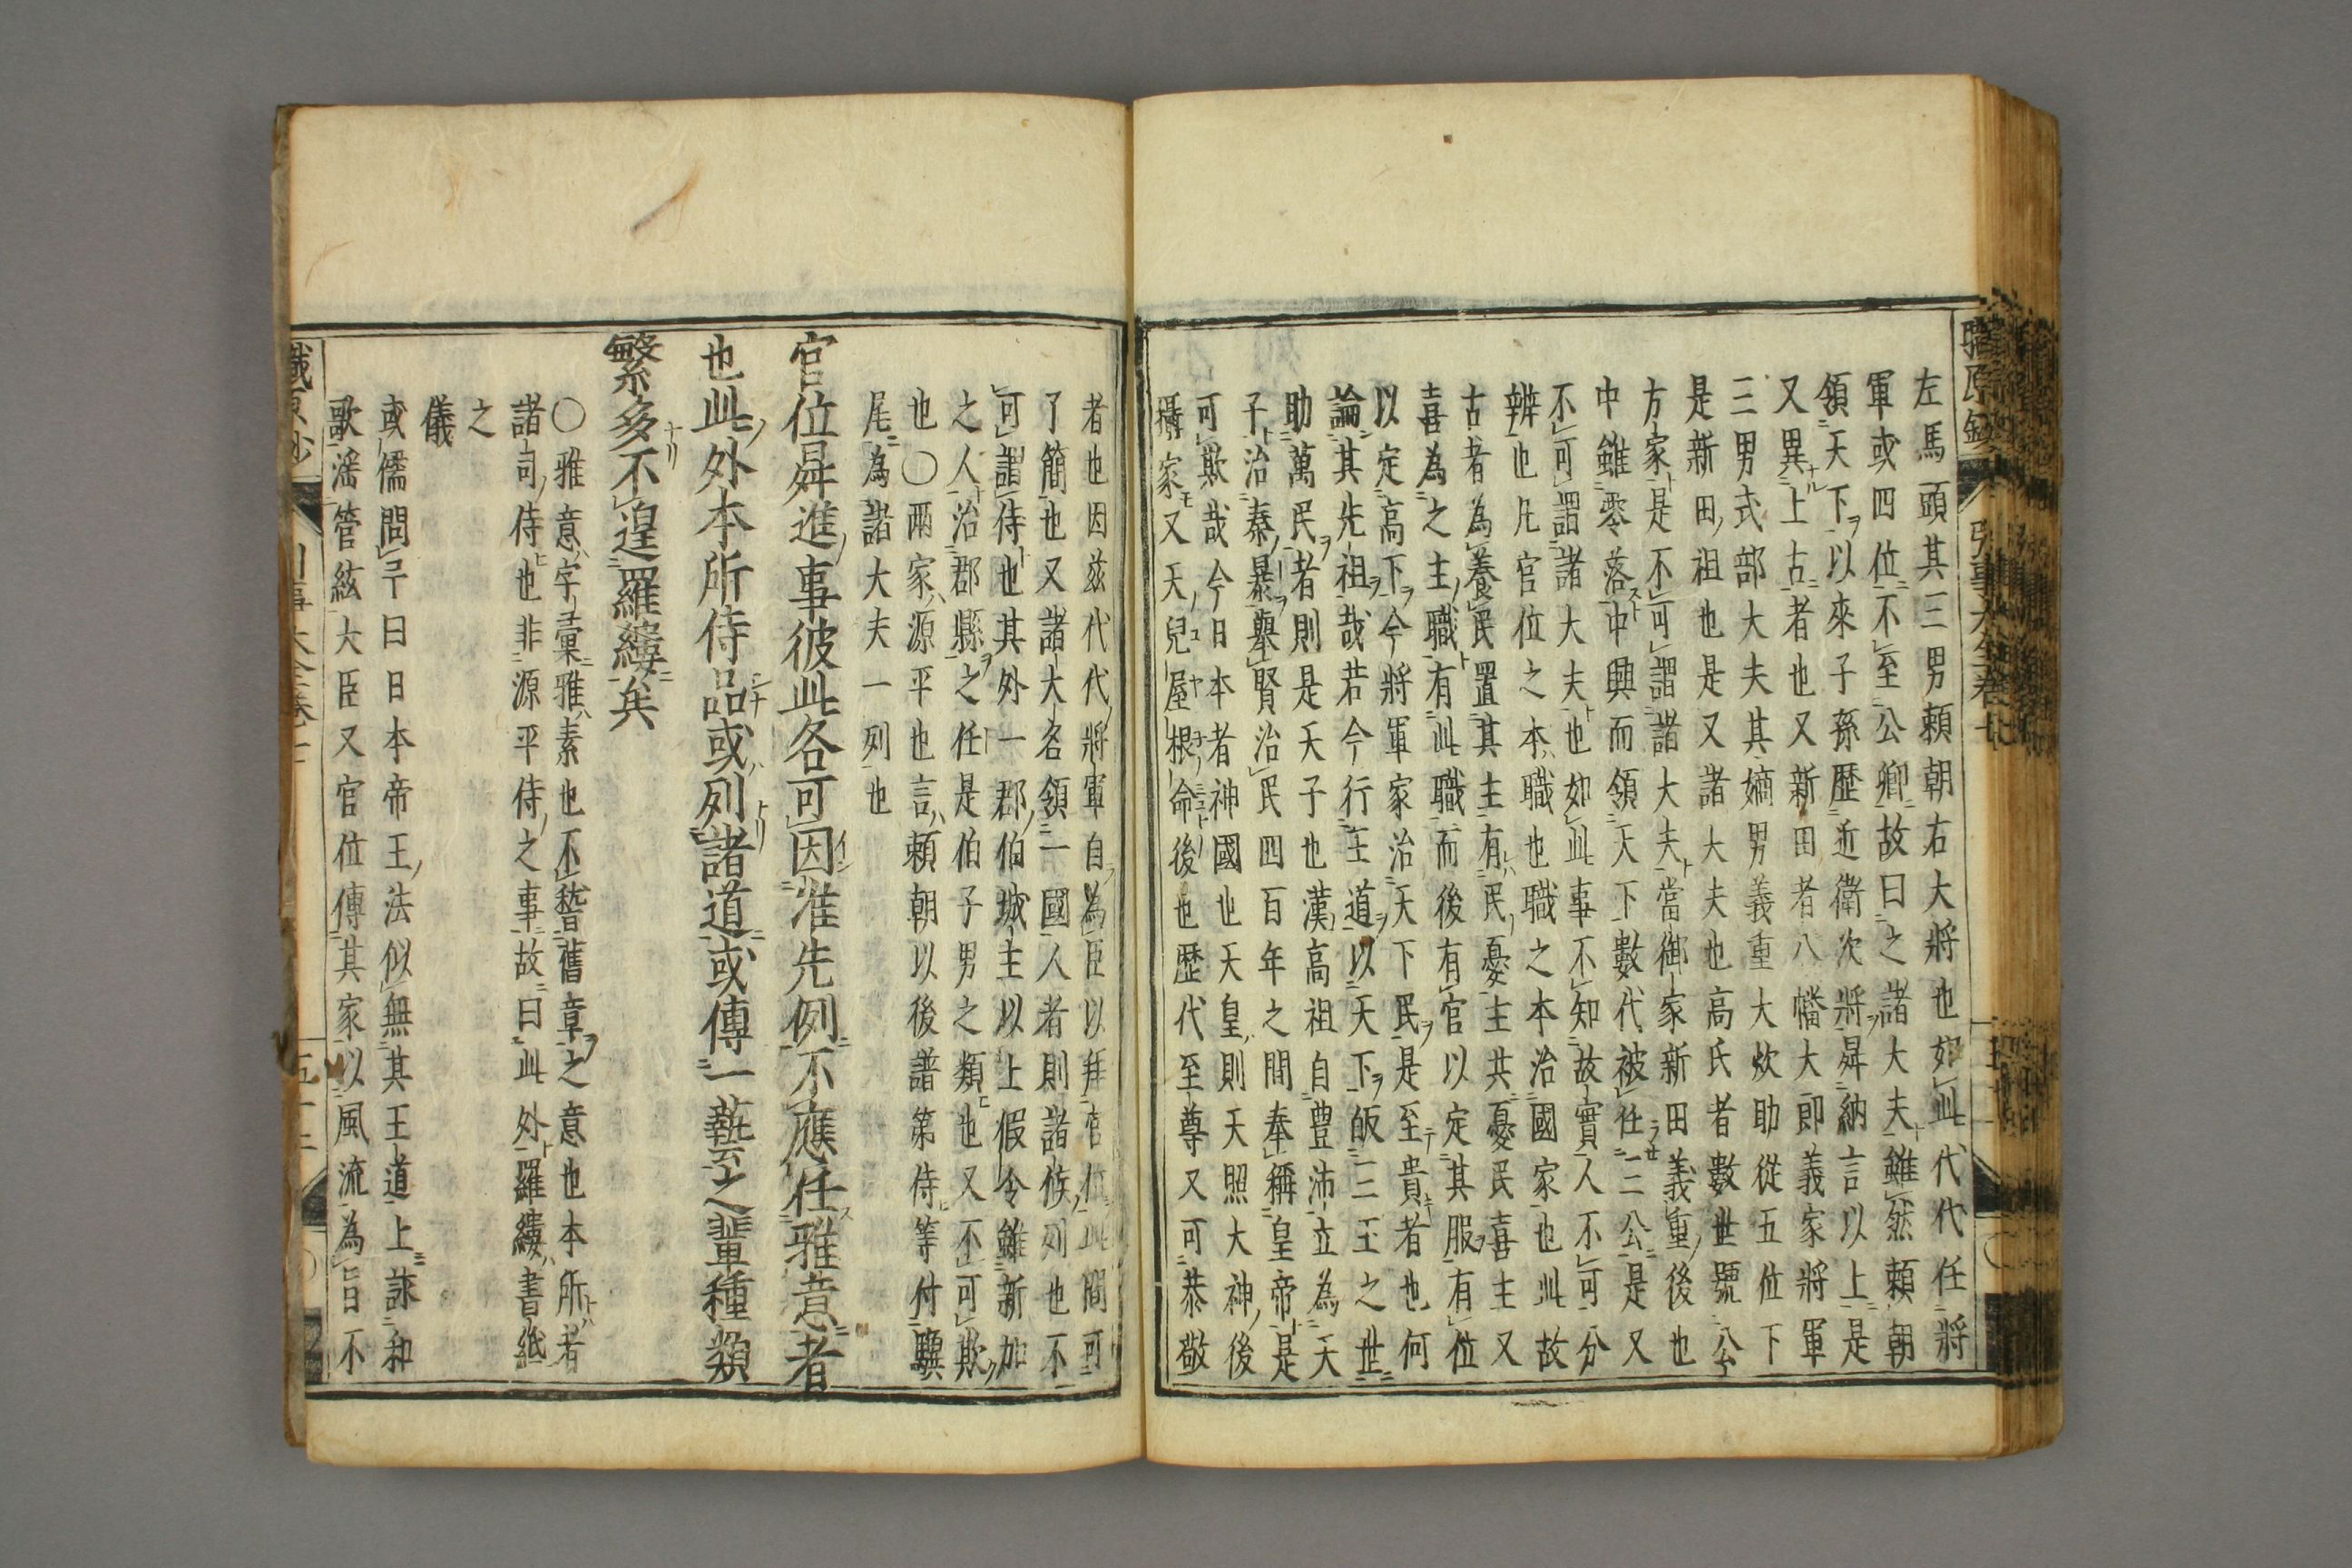 職原鈔 引事大全卷七
左馬頭其三男頼朝右大將也如此代代任將
軍或四位不至公卿故曰之諸大夫雖然頼朝
領天下以來子孫歴近衛次將昇納言以上是
又異上古者也又新田者八幡大郎義家將軍
三男式部大夫其嫡男義重大炊助從五位下
是新田祖也是又諸大夫也高氏者數世號公
方家是不可謂諸大夫當御家新田義重後也
中雖零落中興而領天下數代被任三公是又
不可謂諸大夫也如此事不知故實人不可分
辨也凡官位之本職也職之本治國家也此故
古者為養民置其主有民憂主共憂民喜主又
喜為之主職有此職而後有官以定其服有位
以定高下今將軍家治天下民是至貴者也何
論其先祖哉若今行王道以天下皈三王之世
助萬民者則是天子也漢高祖自豊沛立為天
子治秦暴擧賢治民四百年之間奉稱皇帝是
可欺哉今日本者神國也天皇則天照大神後
攝家又天兒屋根命後也歴代至尊又可恭敬
者也因茲代代將軍自為臣以拜官位此間可
了簡也又諸大名領一國人者則諸候列也不
可謂侍也其外一郡伯城主以上假令雖新加
之人治郡縣之任是伯子男之類也又不可欺
也〇兩家源平也言頼朝以後譜第侍等付驥
尾為諸大夫一列也
官位昇進事彼此各可因准先例不應任雅意者
也此外本所侍品或列諸道或傳一藝之輩種類
繁多不遑羅縷矣
〇雅意字彙雅素也不稽舊章之意也本所者
諸司侍也非源平侍之事故曰此外羅縷書紙
之
儀
或儒問予曰日本帝王法似無其王道上詠和
歌滛管絃大臣又官位傳其家以風流為旨不